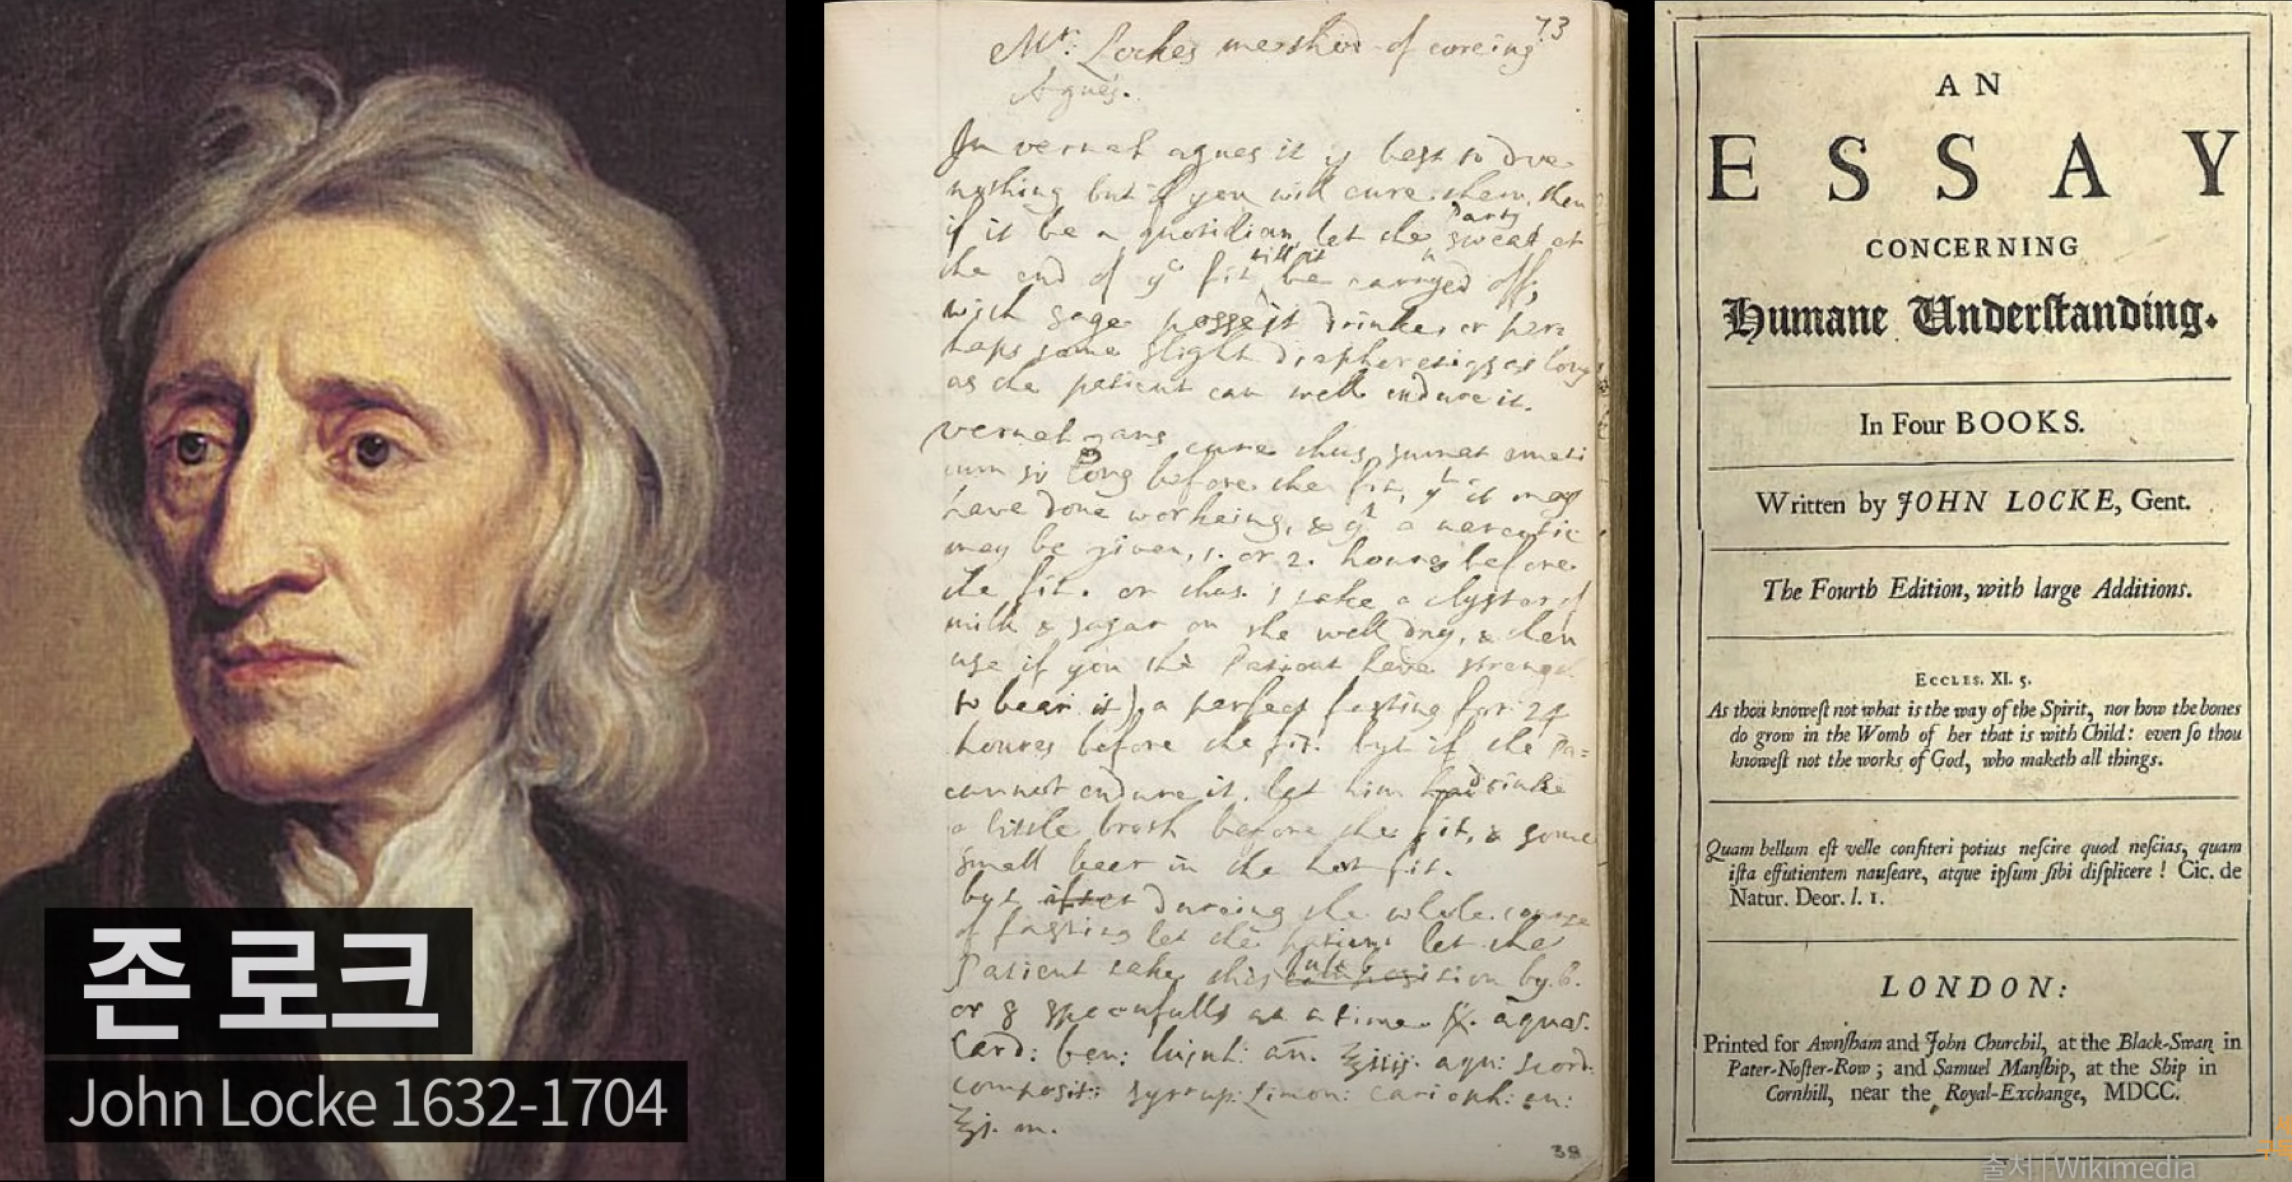 존 로크
John Locke 1632-1704
73
Mr. Lockes method of cureing
Agues.
In vernal agues it is best to doe
nothing but if you will cure them, then
if it be a quotidian, let the party sweat at
the end of ye fit till it be carryed off,
with sage possest drinke, or per-
haps some slight diaphoretiqs as long
as the patient can well endure it.
vernal cure thus
so long before the fit, yt it may
have done workeing, & yt a narcotic
may be given, 1. or 2. houres before
the fit. or thus. take a clyster of
milk & sugar on the well day, & then
use if you the Patient have strength
to bear it), a perfect fasting for 24
houres before the fit. but if the Pa=
cannot endure it, let him drinke
a little broth before the fit, & some
small beer in the hot fit.
but after dureing the whole course
of fasting let the patient let the
Patient take this by 6.
or 8 spoonfulls at a time. aquar.
Card: ben: an. aqu: scord.
composit: syrrup: Limon: carioph: an:
m.
38
AN
ESSAY
CONCERNING
Humane Underſtanding.
In Four BOOKS.
Written by JOHN LOCKE, Gent.
The Fourth Edition, with large Additions.
ECCLES. XI. 5.
As thou knoweſt not what is the way of the Spirit, nor how the bones
do grow in the Womb of her that is with Child: even ſo thou
knoweſt not the works of God, who maketh all things.
Quam bellum eſt velle confiteri potius neſcire quod neſcias, quam
iſta effutientem nauſeare, atque ipſum ſibi diſplicere! Cic. de
Natur. Deor. l. 1.
LONDON:
Printed for Awnſham and John Churchil, at the Black-Swan in
Pater-Noſter-Row; and Samuel Manſhip, at the Ship in
Cornhill, near the Royal-Exchange, MDCC.
출처 | Wikimedia